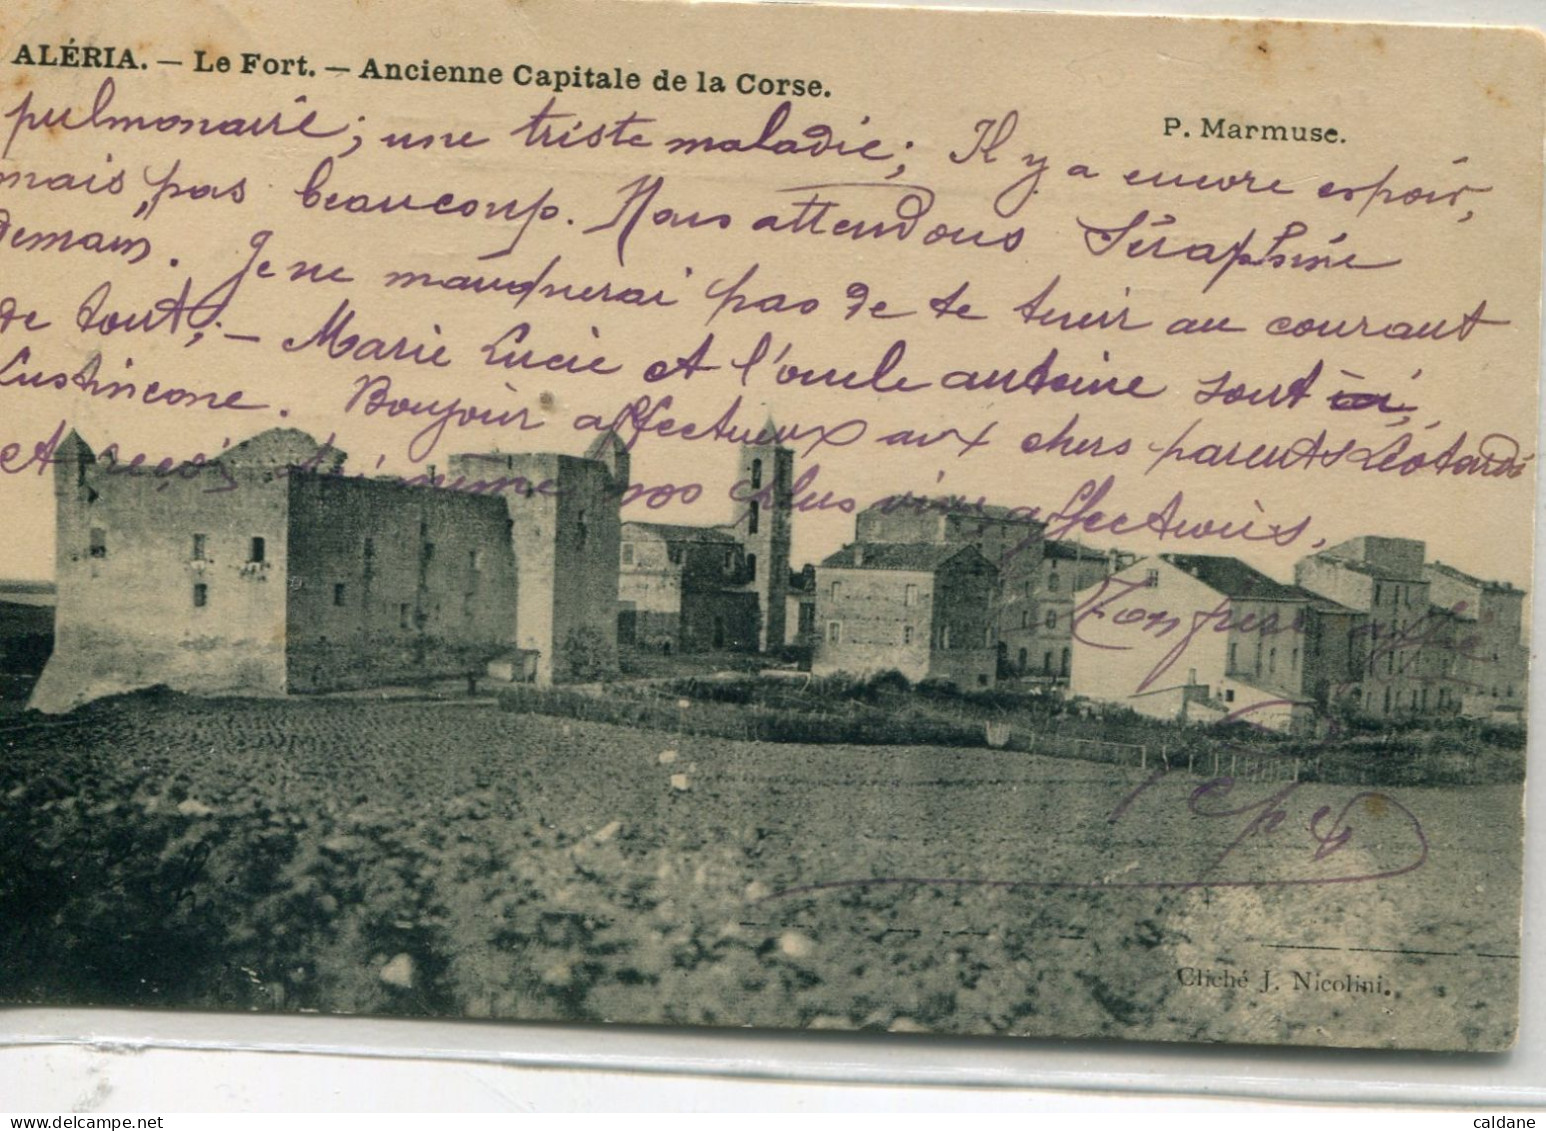 ALÉRIA. — Le Fort. — Ancienne Capitale de la Corse.
P. Marmuse.
pulmonaire ; une triste maladie ; Il y a encore espoir,
mais pas beaucoup. Nous attendons Séraphine
demain. Je ne manquerai pas de te tenir au courant
de tout ; — Marie Lucie et l'oncle antoine sont ici,
Bonjour affectueux aux chers parents
et reçois nos plus vive affectueuis,
Ton
Cliché J. Nicolini.
caldane